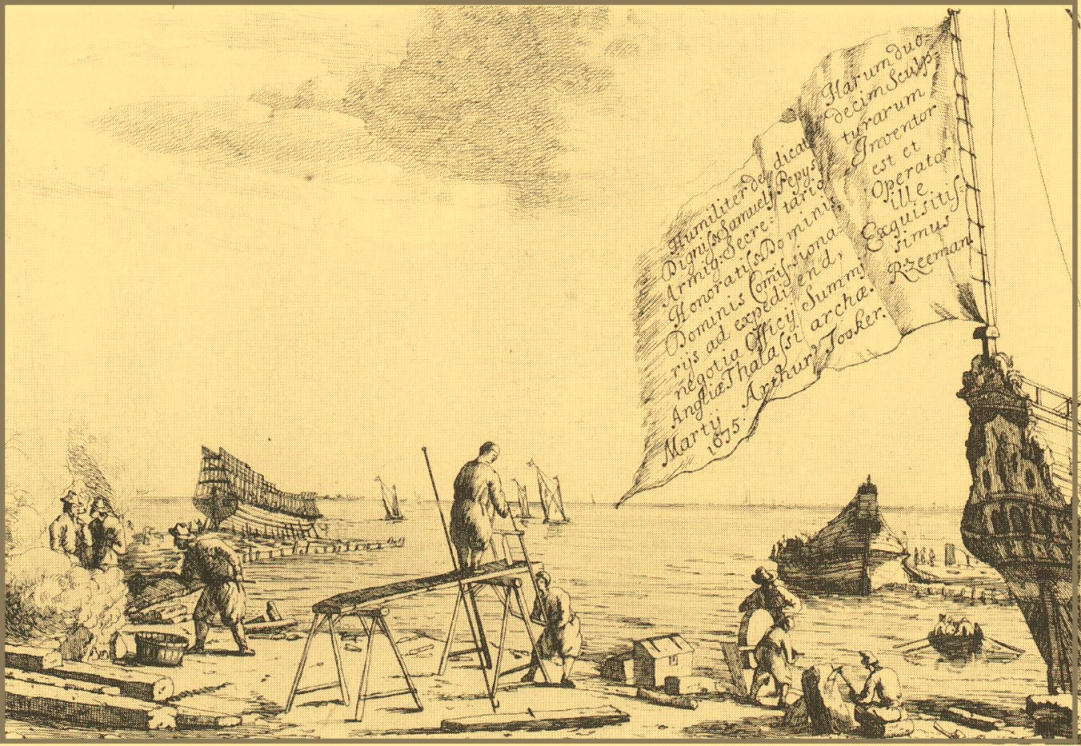 Humiliter de dicat
Digniss Samueli Pepys
Armig: Secre- tario
Honoratiss Dominis,
Dominis Comiss-siona
rijs ad expediend,
negotia Officij Summi
Angliæ Thalassi archæ.
Martij Arthur Tooker.
1675.
Harum duo-
decim Sculp-
turarum
Inventor
est et
Operator
ille
Exquisitis-
simus
RZeeman